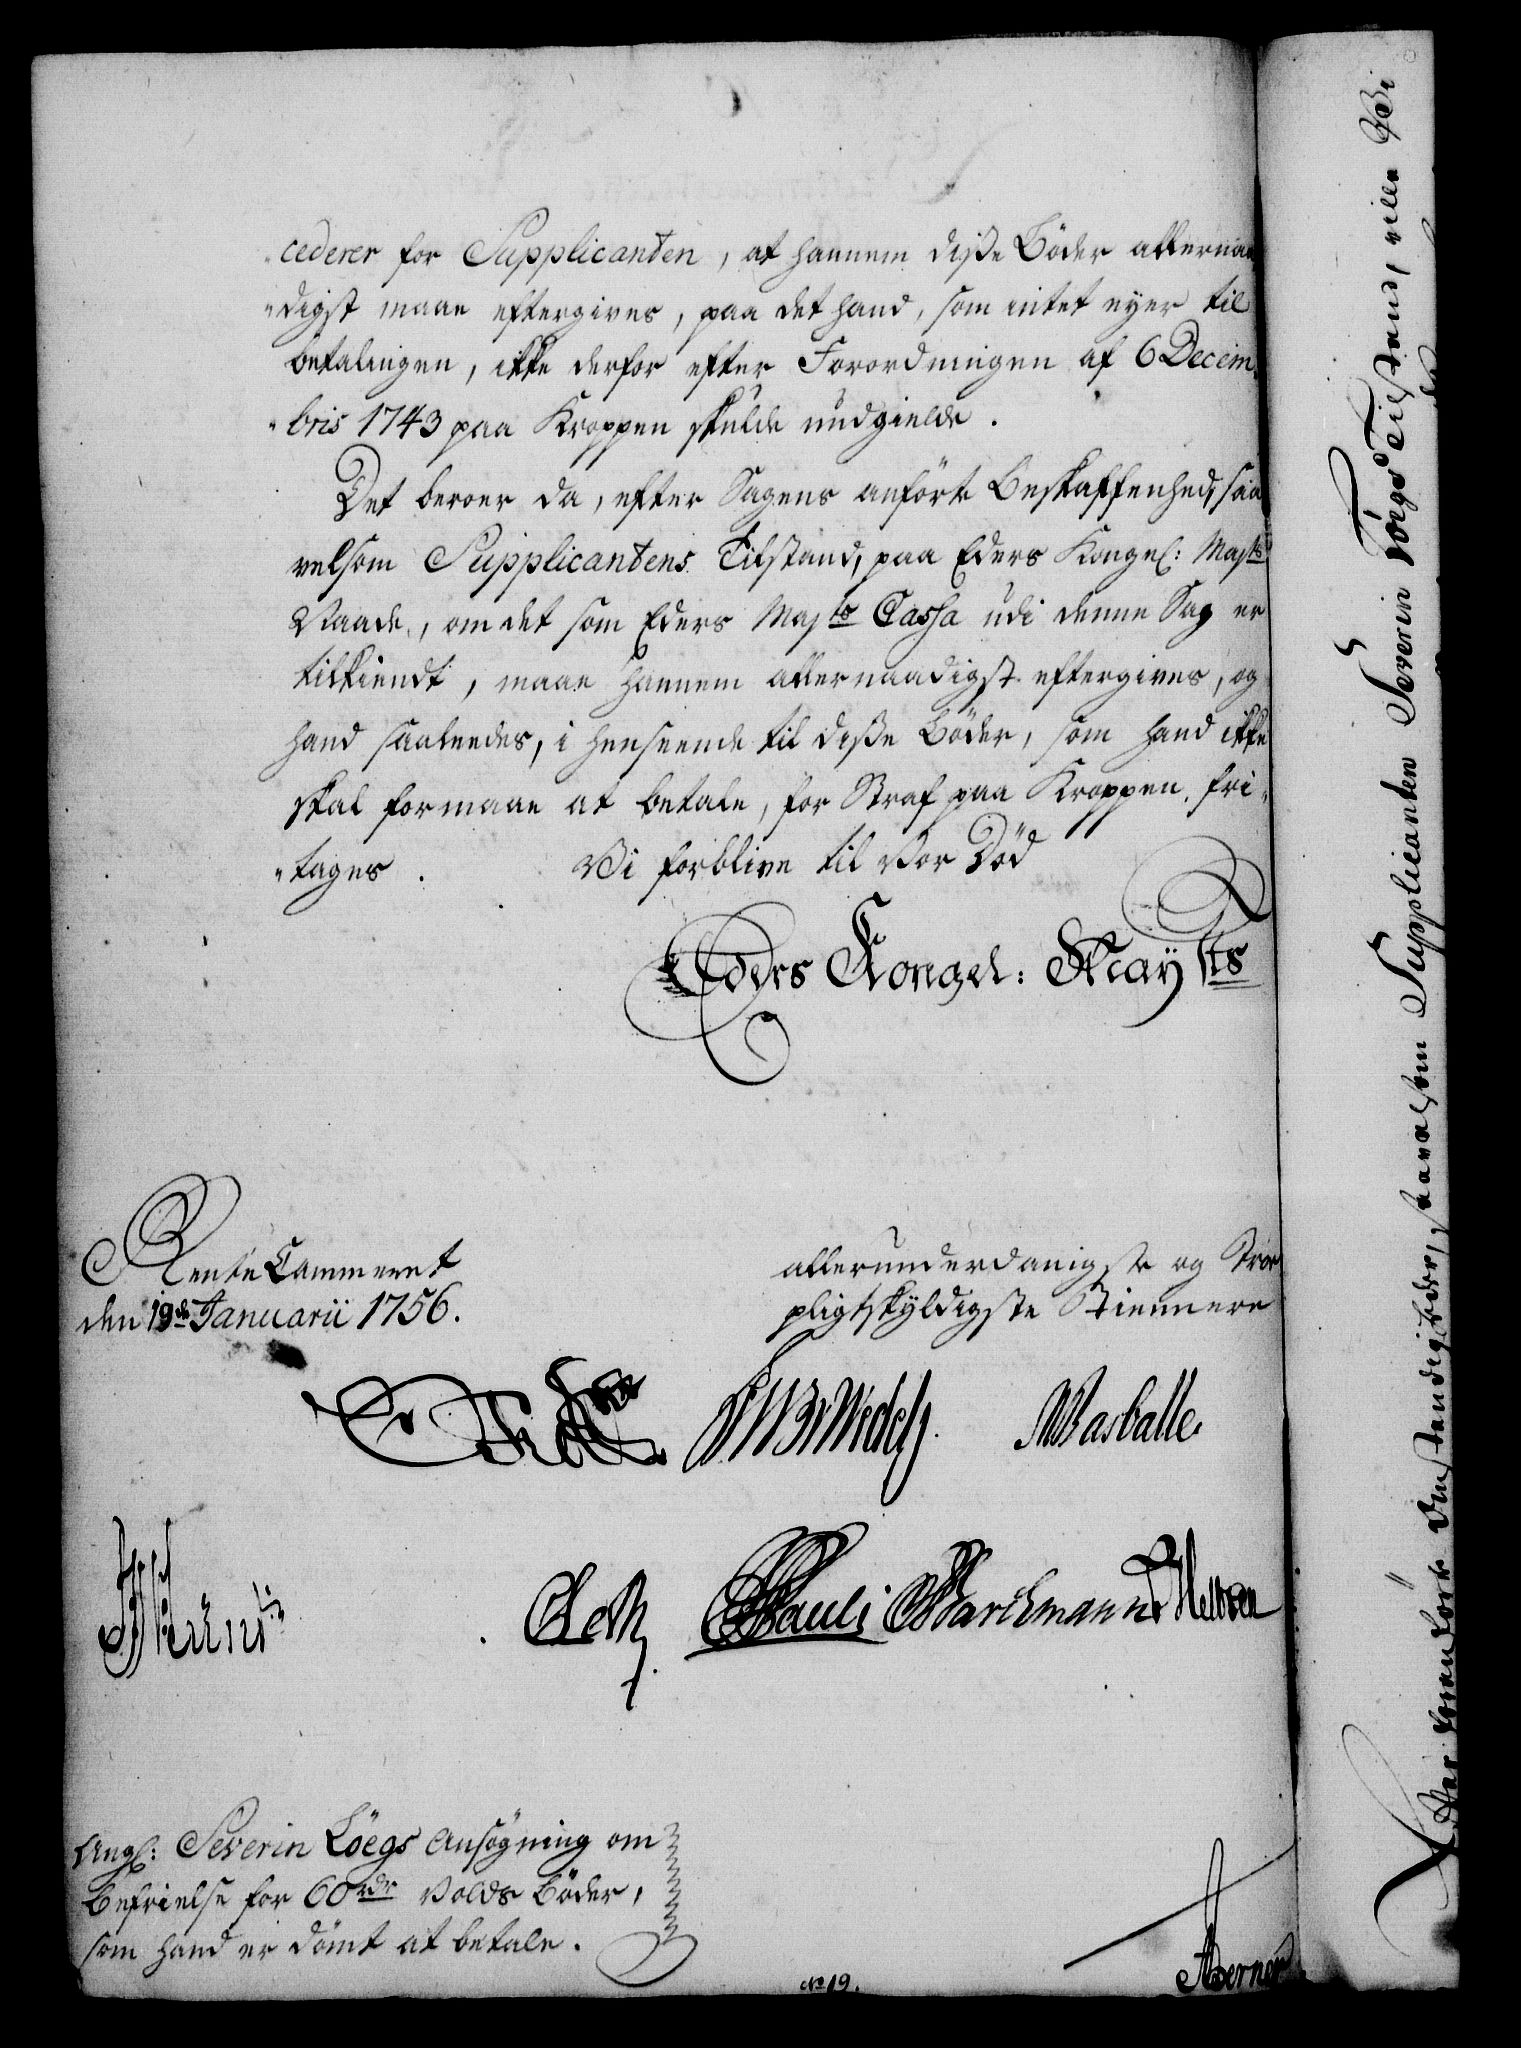 cederer for Supplicanten, at hannem disse Bøder allernaa-
digst maae eftergives, paa det hand, som intet eyer til
betalingen, ikke derfor efter Forordningen af 6 Decem-
bris 1743 paa Kroppen skulde undgielde.
Det beroer da, efter Sagens anförte Beskaffenhed, saa
velsom Supplicantens Tilstand, paa Eders Kongel: Majts
Naade, om det som Eders Majts Cassa udi denne Sag er
tilkiendt, maae hannem allernaadigst eftergives, og
hand saaleedes, i henseende til disse Böder, som hand ikke
skal formaae at betale, for Straf paa Kroppen, fri-
tages. Vi forblive til vor Död
Eders Kongel: Mayts
Rente Cammeret
den 19de Januarii 1756.
allerunderdanigste og Troe
pligtskyldigste Tiennere
Wedel
Barballe
Pauli Marckmann
Ang: Severin Löegs Ansögning om
Befrielse for 60 rdr Volds Böder,
som hand er dömt at betale.
No 19.
Berner
saavelsom Supplicanten Severin Löegs Tilstand, ville Vi